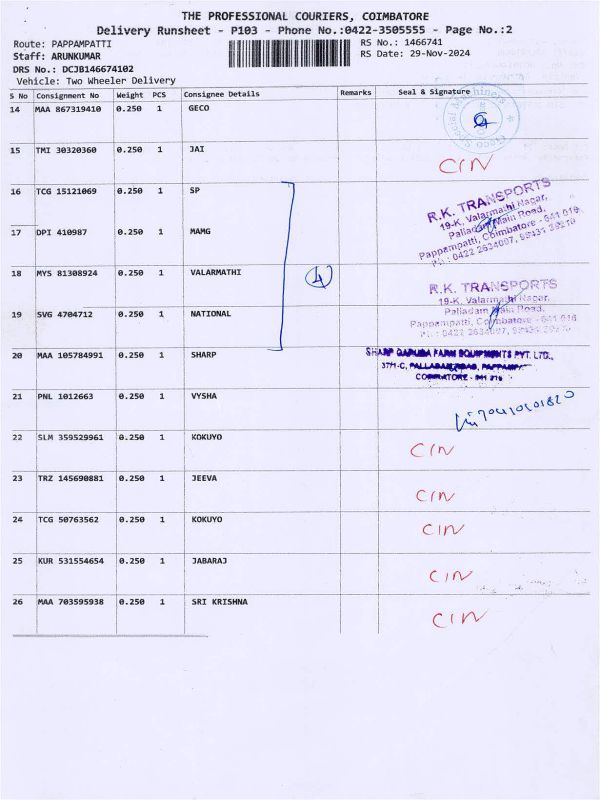 THE PROFESSIONAL COURIERS, COIMBATORE
Delivery Runsheet - P103 - Phone No.:0422-3505555 - Page No.:2
Route: PAPPAMPATTI
RS No.: 1466741
Staff: ARUNKUMAR
RS Date: 29-Nov-2024
DRS No.: DCJB146674102
Vehicle: Two Wheeler Delivery
S No Consignment No Weight PCS Consignee Details Remarks Seal & Signature
14 MAA 867319410 0.250 1 GECO
15 TMI 30320360 0.250 1 JAI CIN
16 TCG 15121069 0.250 1 SP
R.K. TRANSPORTS
19-K, Valarmathi Nagar,
Palladam Main Road,
Pappampatti, Coimbatore - 641 016
17 DPI 410987 0.250 1 MAMG
18 MYS 81308924 0.250 1 VALARMATHI 4
R.K. TRANSPORTS
19-K, Valarmathi Nagar,
Palladam Main Road,
Pappampatti, Coimbatore - 641 016
19 SVG 4704712 0.250 1 NATIONAL
20 MAA 105784991 0.250 1 SHARP
SHARP GARUDA FARM EQUIPMENTS PVT. LTD.,
37/1-C, PALLADAM ROAD,
COIMBATORE - 641 016
21 PNL 1012663 0.250 1 VYSHA
22 SLM 359529961 0.250 1 KOKUYO CIN
23 TRZ 145690881 0.250 1 JEEVA CIN
24 TCG 50763562 0.250 1 KOKUYO CIN
25 KUR 531554654 0.250 1 JABARAJ CIN
26 MAA 703595938 0.250 1 SRI KRISHNA CIN